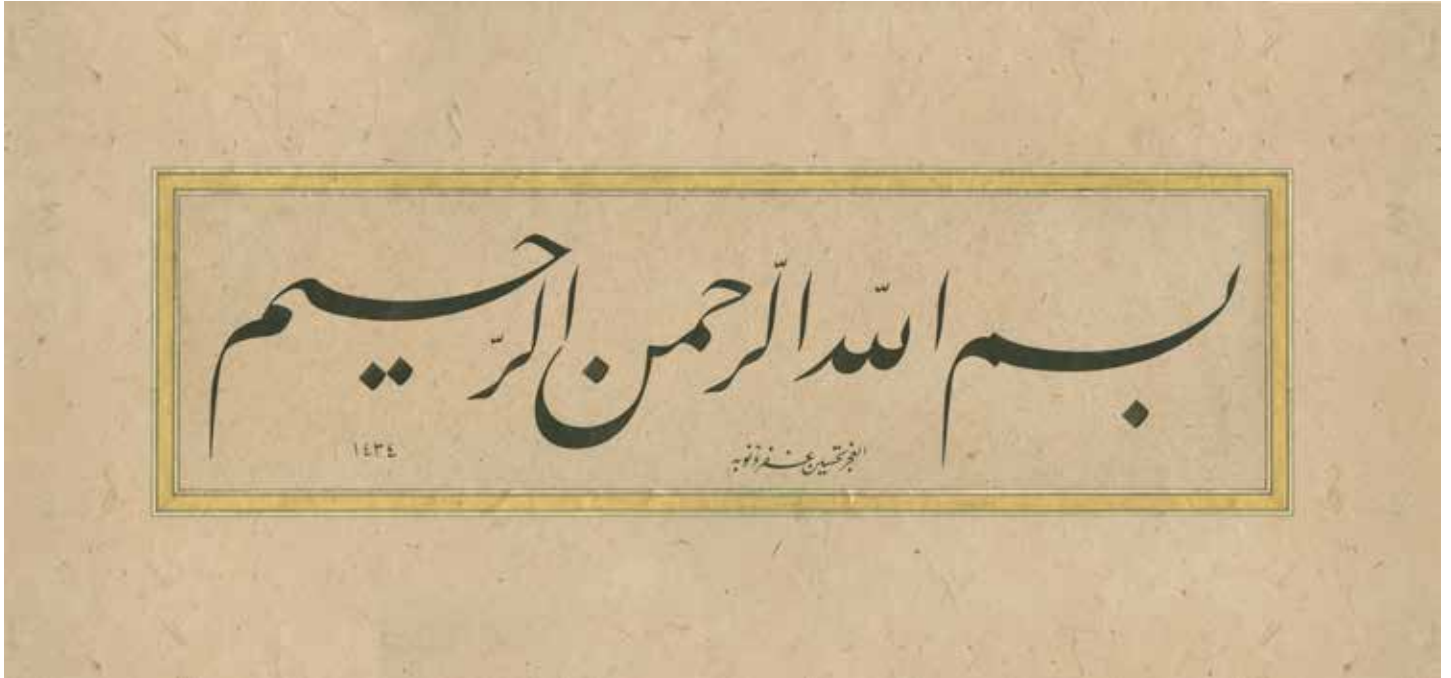 بسم اللّه الرّحمن الرّحيم
الفقير تحسين غفر ذنوبه
١٤٣٤